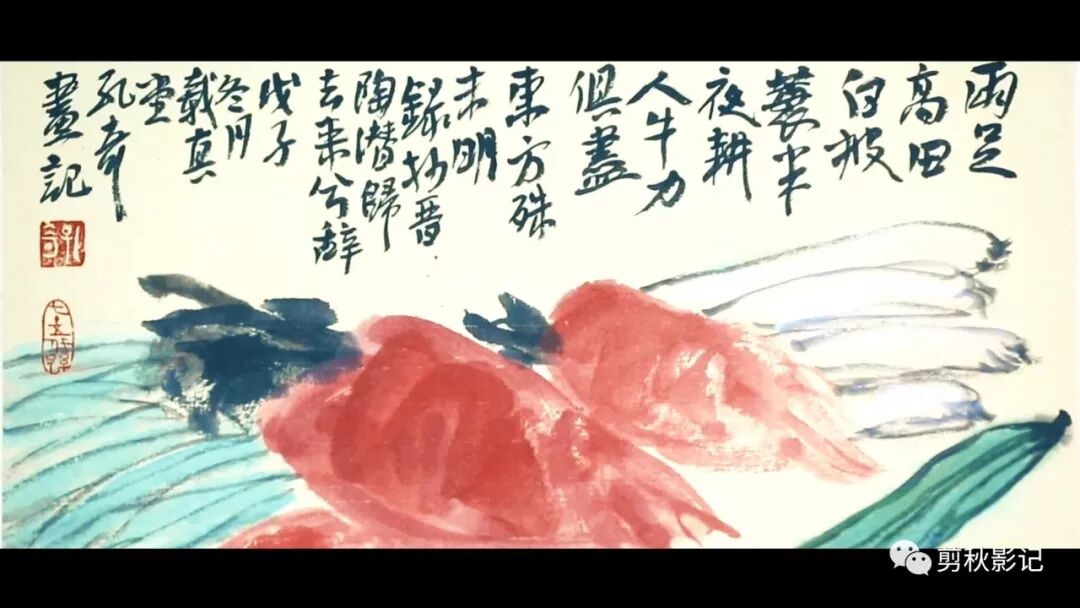 雨足
高田
白披
蓑半
夜耕
人牛力
俱盡
東方殊
未明
録抄晋
陶潜歸
去来兮辞
戊子
冬月
載真
堂
孔奇
畫記
剪秋影记